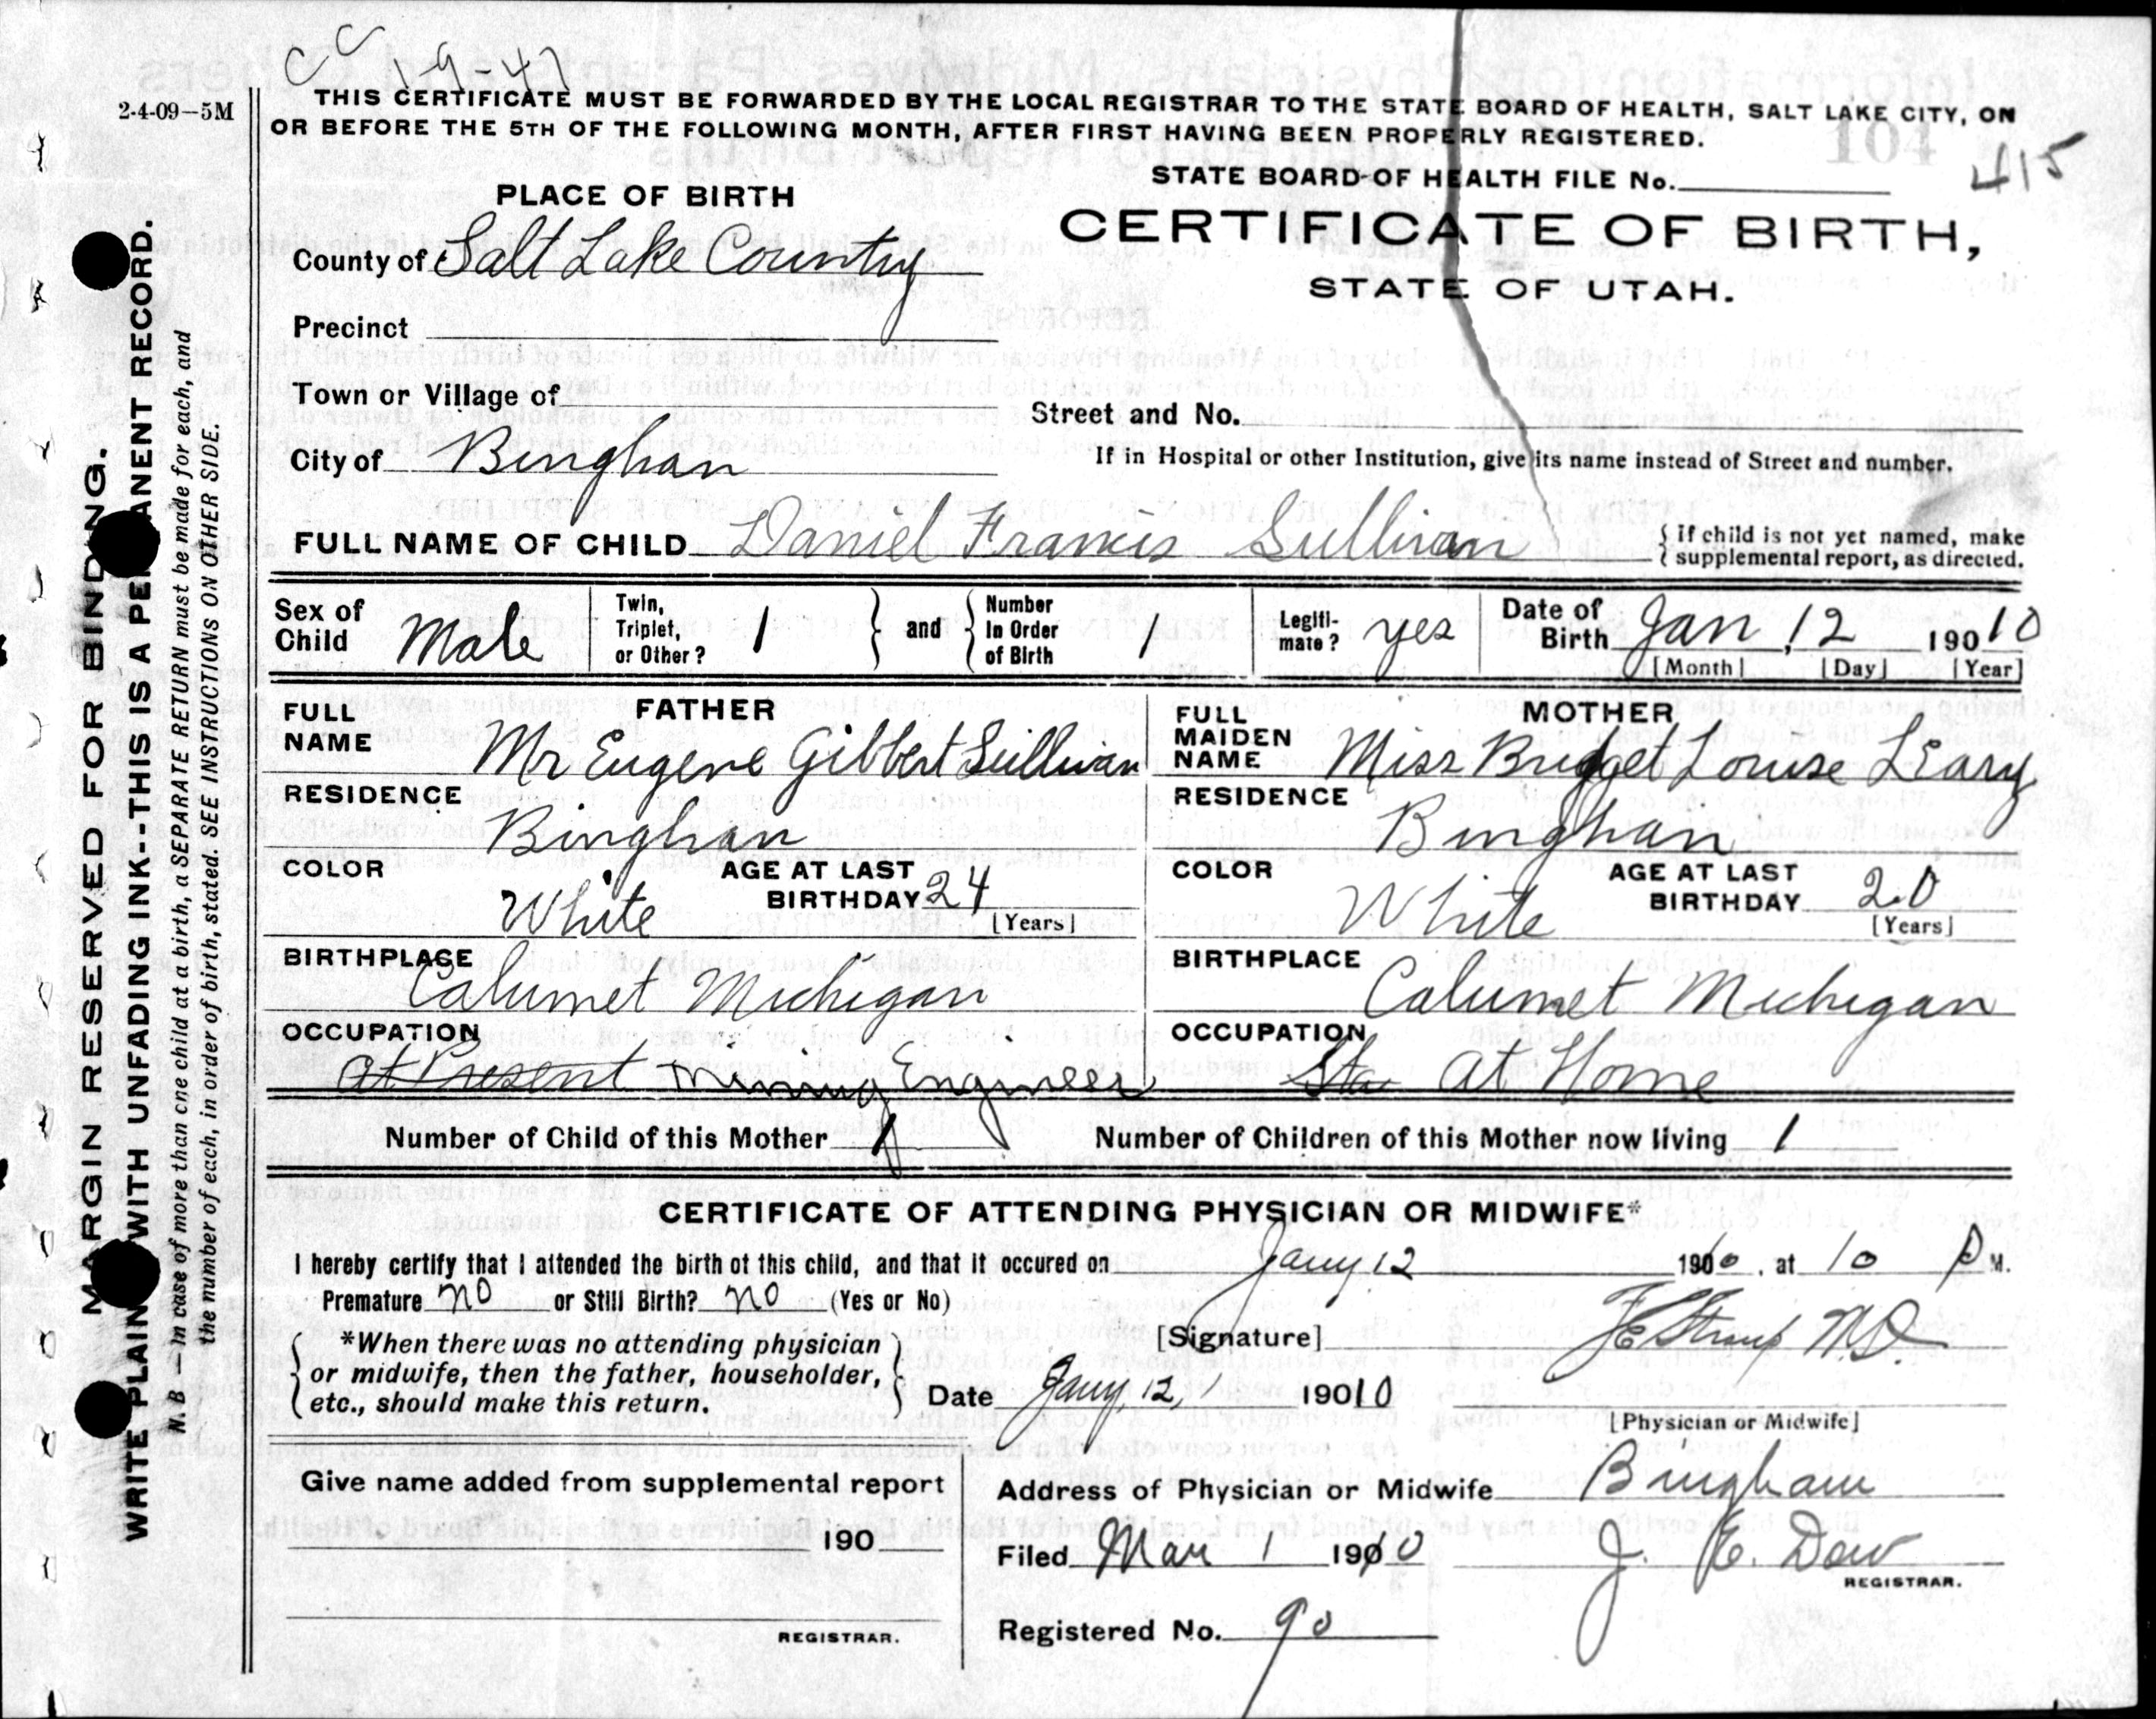 CC 19-47
2-4-09—5M
THIS CERTIFICATE MUST BE FORWARDED BY THE LOCAL REGISTRAR TO THE STATE BOARD OF HEALTH, SALT LAKE CITY, ON
OR BEFORE THE 5TH OF THE FOLLOWING MONTH, AFTER FIRST HAVING BEEN PROPERLY REGISTERED.
104
415
STATE BOARD OF HEALTH FILE No.
PLACE OF BIRTH
CERTIFICATE OF BIRTH,
STATE OF UTAH.
County of Salt Lake Country
Precinct
Town or Village of
Street and No.
City of Binghan
If in Hospital or other Institution, give its name instead of Street and number.
FULL NAME OF CHILD Daniel Francis Sullivan
{ If child is not yet named, make
{ supplemental report, as directed.
Sex of Child Male
Twin, Triplet, or Other? 1 } and { Number In Order of Birth 1
Legiti-mate? yes
Date of Birth Jan, 12 19010
[Month] [Day] [Year]
FATHER
FULL NAME Mr Eugene Gilbbert Sullivan
MOTHER
FULL MAIDEN NAME Miss Bridget Louise LEary
RESIDENCE Binghan
RESIDENCE Binghan
COLOR White AGE AT LAST BIRTHDAY 24 [Years]
COLOR White AGE AT LAST BIRTHDAY 20 [Years]
BIRTHPLACE Calumet Michigan
BIRTHPLACE Calumet Michigan
OCCUPATION at Present Mining Engineer
OCCUPATION at Home
Number of Child of this Mother 1
Number of Children of this Mother now living 1
CERTIFICATE OF ATTENDING PHYSICIAN OR MIDWIFE*
I hereby certify that I attended the birth of this child, and that it occured on Jany 12 1910, at 10 P M.
Premature no or Still Birth? no (Yes or No)
*When there was no attending physician
or midwife, then the father, householder,
etc., should make this return.
[Signature] M.D.
Date Jany, 12, 19010
[Physician or Midwife]
Give name added from supplemental report
190
REGISTRAR.
Address of Physician or Midwife Bingham
Filed Mar 1 1910
J. E. Dew
REGISTRAR.
Registered No. 90
MARGIN RESERVED FOR BINDING.
WRITE PLAIN WITH UNFADING INK--THIS IS A PE ANENT RECORD.
N. B.—In case of more than one child at a birth, a SEPARATE RETURN must be made for each, and
the number of each, in order of birth, stated. SEE INSTRUCTIONS ON OTHER SIDE.